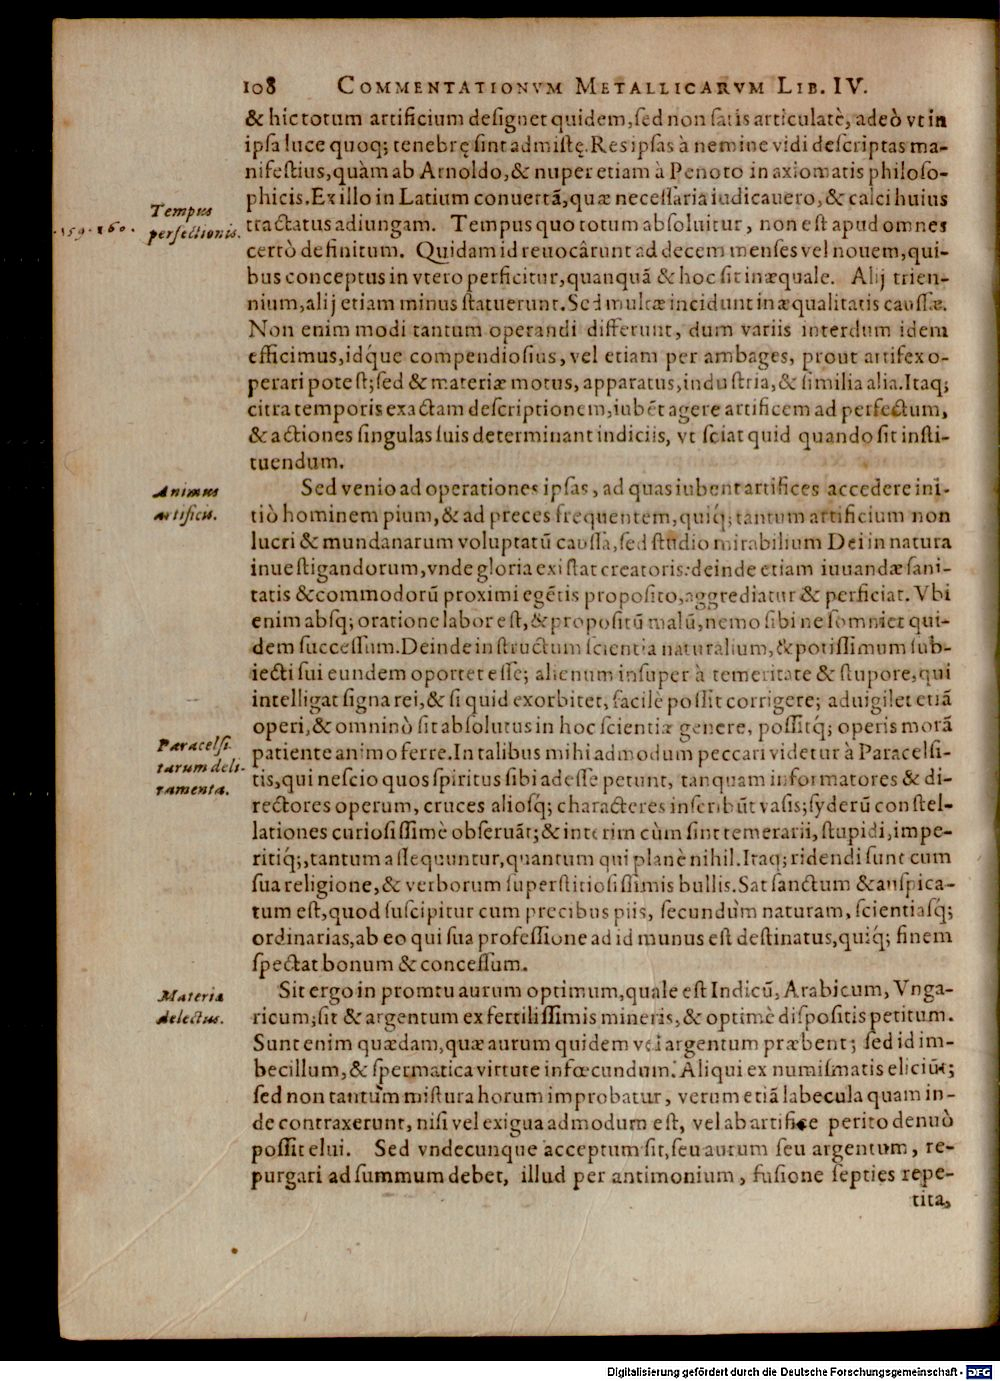 108 COMMENTATIONVM METALLICARVM LIB. IV.
& hic totum artificium designet quidem, sed non satis articulatè, adeò vt in
ipsa luce quoq; tenebrę sint admistę. Res ipsas à nemine vidi descriptas ma-
nifestius, quàm ab Arnoldo, & nuper etiam à Penoto in axiomatis philoso-
phicis. Ex illo in Latium conuertā, quæ necessaria iudicauero, & calci huius
Tempus
perfectionis.
159. 160.
tractatus adiungam. Tempus quo totum absoluitur, non est apud omnes
certò definitum. Quidam id reuocârunt ad decem menses vel nouem, qui-
bus conceptus in vtero perficitur, quanquā & hoc sit inæquale. Alij trien-
nium, alij etiam minus statuerunt. Sed multæ incidunt inæqualitatis caussæ.
Non enim modi tantum operandi differunt, dum variis interdum idem
efficimus, idq́ue compendiosius, vel etiam per ambages, prout artifex o-
perari potest; sed & materiæ motus, apparatus, industria, & similia alia. Itaq;
citra temporis exactam descriptionem, iubēt agere artificem ad perfectum,
& actiones singulas suis determinant indiciis, vt sciat quid quando sit insti-
tuendum.
Animus
artificis.
Sed venio ad operationes ipsas, ad quas iubent artifices accedere ini-
tiò hominem pium, & ad preces frequentem, quiq́; tantum artificium non
lucri & mundanarum voluptatū caussa, sed studio mirabilium Dei in natura
inuestigandorum, vnde gloria existat creatoris: deinde etiam iuuandæ sani-
tatis & commodorū proximi egētis proposito, aggrediatur & perficiat. Vbi
enim absq; oratione labor est, & propositū malū, nemo sibi ne somniet qui-
dem successum. Deinde instructum scientia naturalium, & potissimum sub-
iecti sui eundem oportet esse; alienum insuper à temeritate & stupore, qui
intelligat signa rei, & si quid exorbitet, facilè possit corrigere; aduigilet etiā
operi, & omninò sit absolutus in hoc scientiæ genere, possitq́; operis morā
Paracelsi-
tarum deli-
ramenta.
patiente animo ferre. In talibus mihi admodum peccari videtur à Paracelsi-
tis, qui nescio quos spiritus sibi adesse petunt, tanquam informatores & di-
rectores operum, cruces aliosq́; characteres inscribūt vasis; syderū constel-
lationes curiosissimè obseruāt; & interim cùm sint temerarii, stupidi, impe-
ritiq́;, tantum assequuntur, quantum qui planè nihil. Itaq; ridendi sunt cum
sua religione, & verborum superstitiosissimis bullis. Sat sanctum & auspica-
tum est, quod suscipitur cum precibus piis, secundùm naturam, scientiasq́;
ordinarias, ab eo qui sua professione ad id munus est destinatus, quiq́; finem
spectat bonum & concessum.
Materia
delectus.
Sit ergo in promtu aurum optimum, quale est Indicū, Arabicum, Vnga-
ricum; sit & argentum ex fertilissimis mineris, & optimè dispositis petitum.
Sunt enim quædam, quæ aurum quidem vel argentum præbent; sed id im-
becillum, & spermatica virtute infœcundum. Aliqui ex numismatis eliciūt;
sed non tantùm mistura horum improbatur, verum etiā labecula quam in-
de contraxerunt, nisi vel exigua admodum est, vel ab artifice perito denuò
possit elui. Sed vndecunque acceptum sit, seu aurum seu argentum, re-
purgari ad summum debet, illud per antimonium, fusione septies repe-
tita,
Digitalisierung gefördert durch die Deutsche Forschungsgemeinschaft - DFG